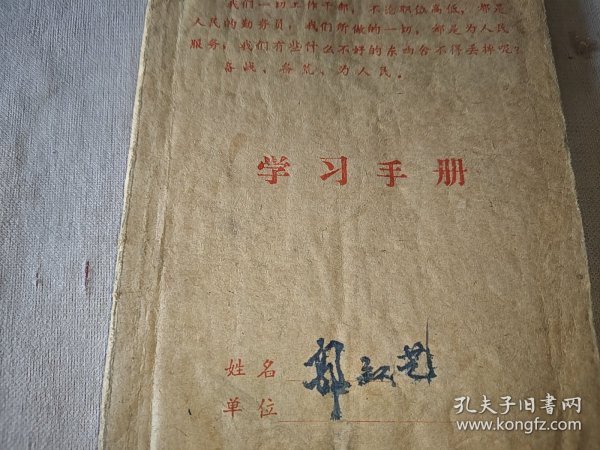 我们一切工作干部，不论职位高低，都是
人民的勤务员，我们所做的一切，都是为人民
服务，我们有些什么不好的东西舍不得丢掉呢？
备战、备荒、为人民。
学习手册
姓名 郭
单位
孔夫子旧书网
www.kongfz.com